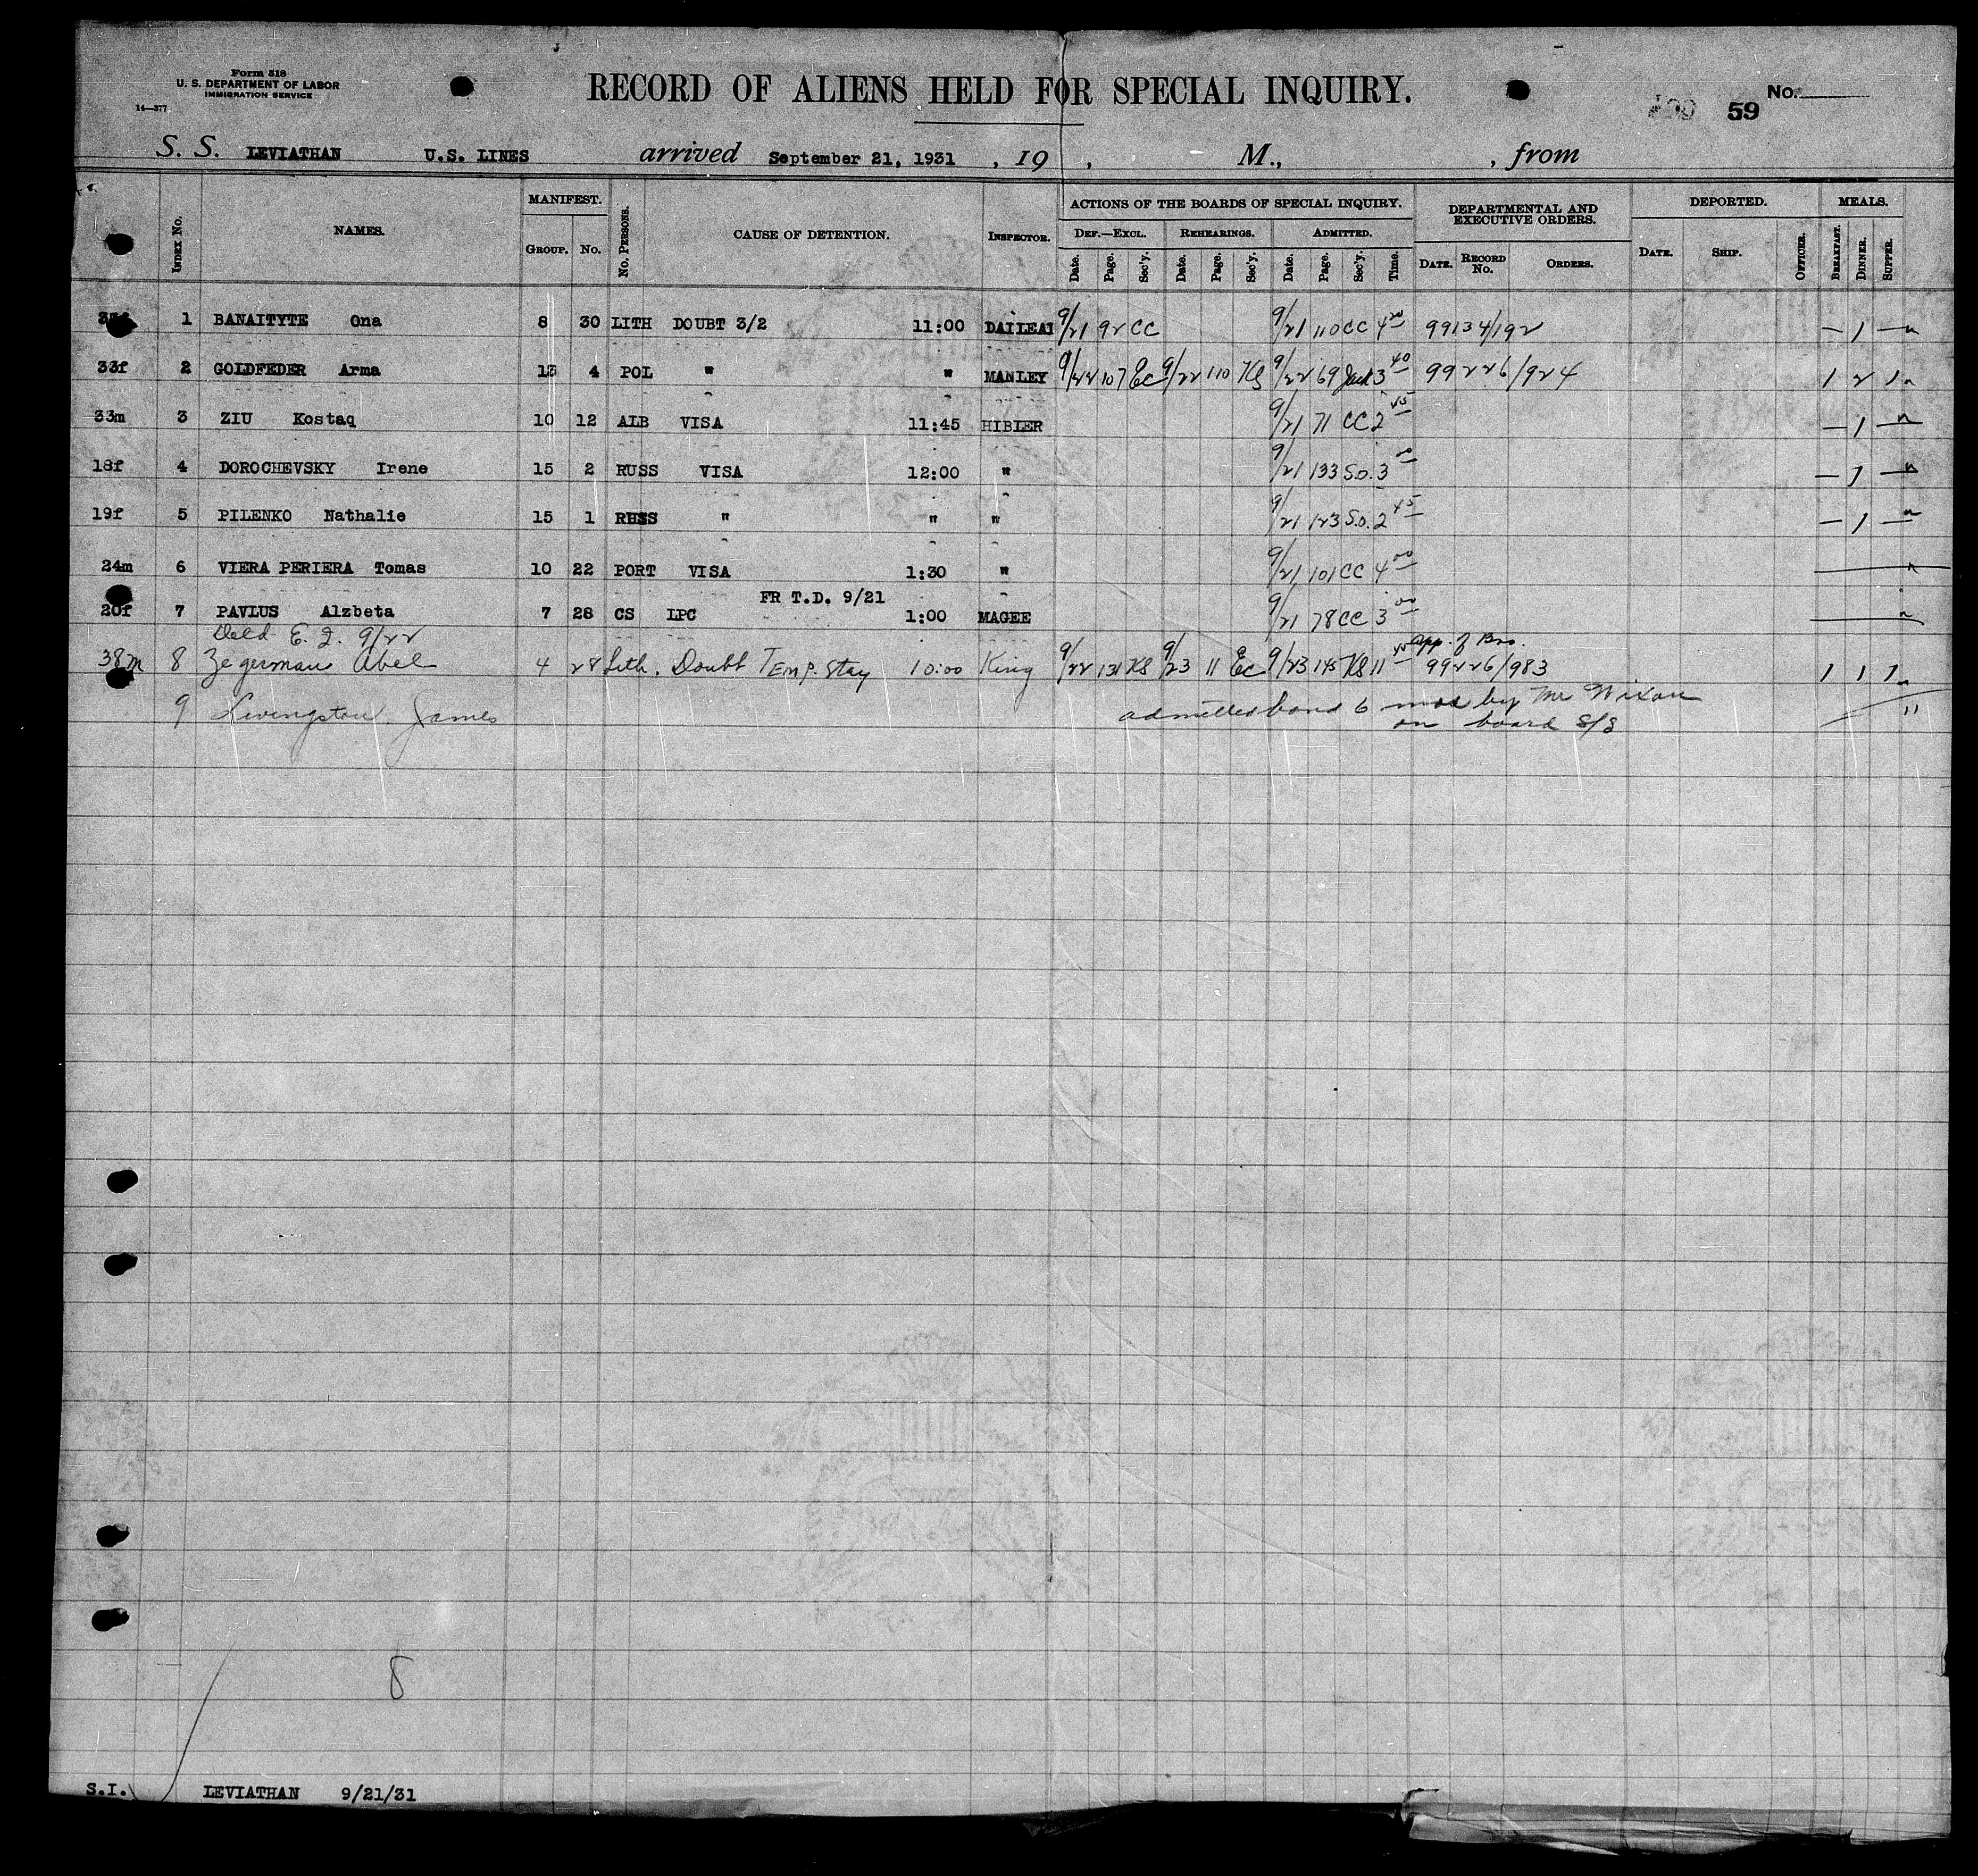 Form 318
U. S. DEPARTMENT OF LABOR
IMMIGRATION SERVICE
14—377
RECORD OF ALIENS HELD FOR SPECIAL INQUIRY.
59 No.
S. S. LEVIATHAN U.S. LINES arrived September 21, 1931 , 19 , M., , from
INDEX NO. NAMES. MANIFEST. GROUP. NO. No. PERSONS. CAUSE OF DETENTION. INSPECTOR. ACTIONS OF THE BOARDS OF SPECIAL INQUIRY. DEPARTMENTAL AND EXECUTIVE ORDERS. DEPORTED. MEALS.
DEF.—EXCL. REHEARINGS. ADMITTED.
Date. Page. Sec'y. Date. Page. Sec'y. Date. Page. Sec'y. Time. DATE. RECORD NO. ORDERS. DATE. SHIP. OFFICER. BREAKFAST. DINNER. SUPPER.
1 BANAITYTE Ona 8 30 LITH DOUBT 3/2 11:00 DAILEAI 9/21 92 CC 9/21 110 CC 4 20 99134/192 — 1 —
33f 2 GOLDFEDER Arma 13 4 POL " " MANLEY 9/22 107 EC 9/22 110 KS 9/22 69 3 40 99226/924 1 2 1
33m 3 ZIU Kostaq 10 12 ALB VISA 11:45 HIBIER 9/21 71 CC 2 45 — 1 —
18f 4 DOROCHEVSKY Irene 15 2 RUSS VISA 12:00 " 9/21 133 S.O. 3 00 — 1 —
19f 5 PILENKO Nathalie 15 1 RUSS " " " 9/21 123 S.O. 2 45 — 1 —
24m 6 VIERA PERIERA Tomas 10 22 PORT VISA 1:30 " 9/21 101 CC 4 00
FR T.D. 9/21
20f 7 PAVLUS Alzbeta 7 28 CS LPC 1:00 MAGEE 9/21 78 CC 3 00
Deld E. I. 9/22 app. of Bro.
38m 8 Zegerman Abel 4 28 Lith. Doubt Temp. Stay 10:00 King 9/22 131 KS 9/23 11 EC 9/23 145 KS 11 45 99226/983 1 1 1
9 Livingston James admitted bond 6 mos by Mr Nixon
on board S/S
8
S.I. LEVIATHAN 9/21/31